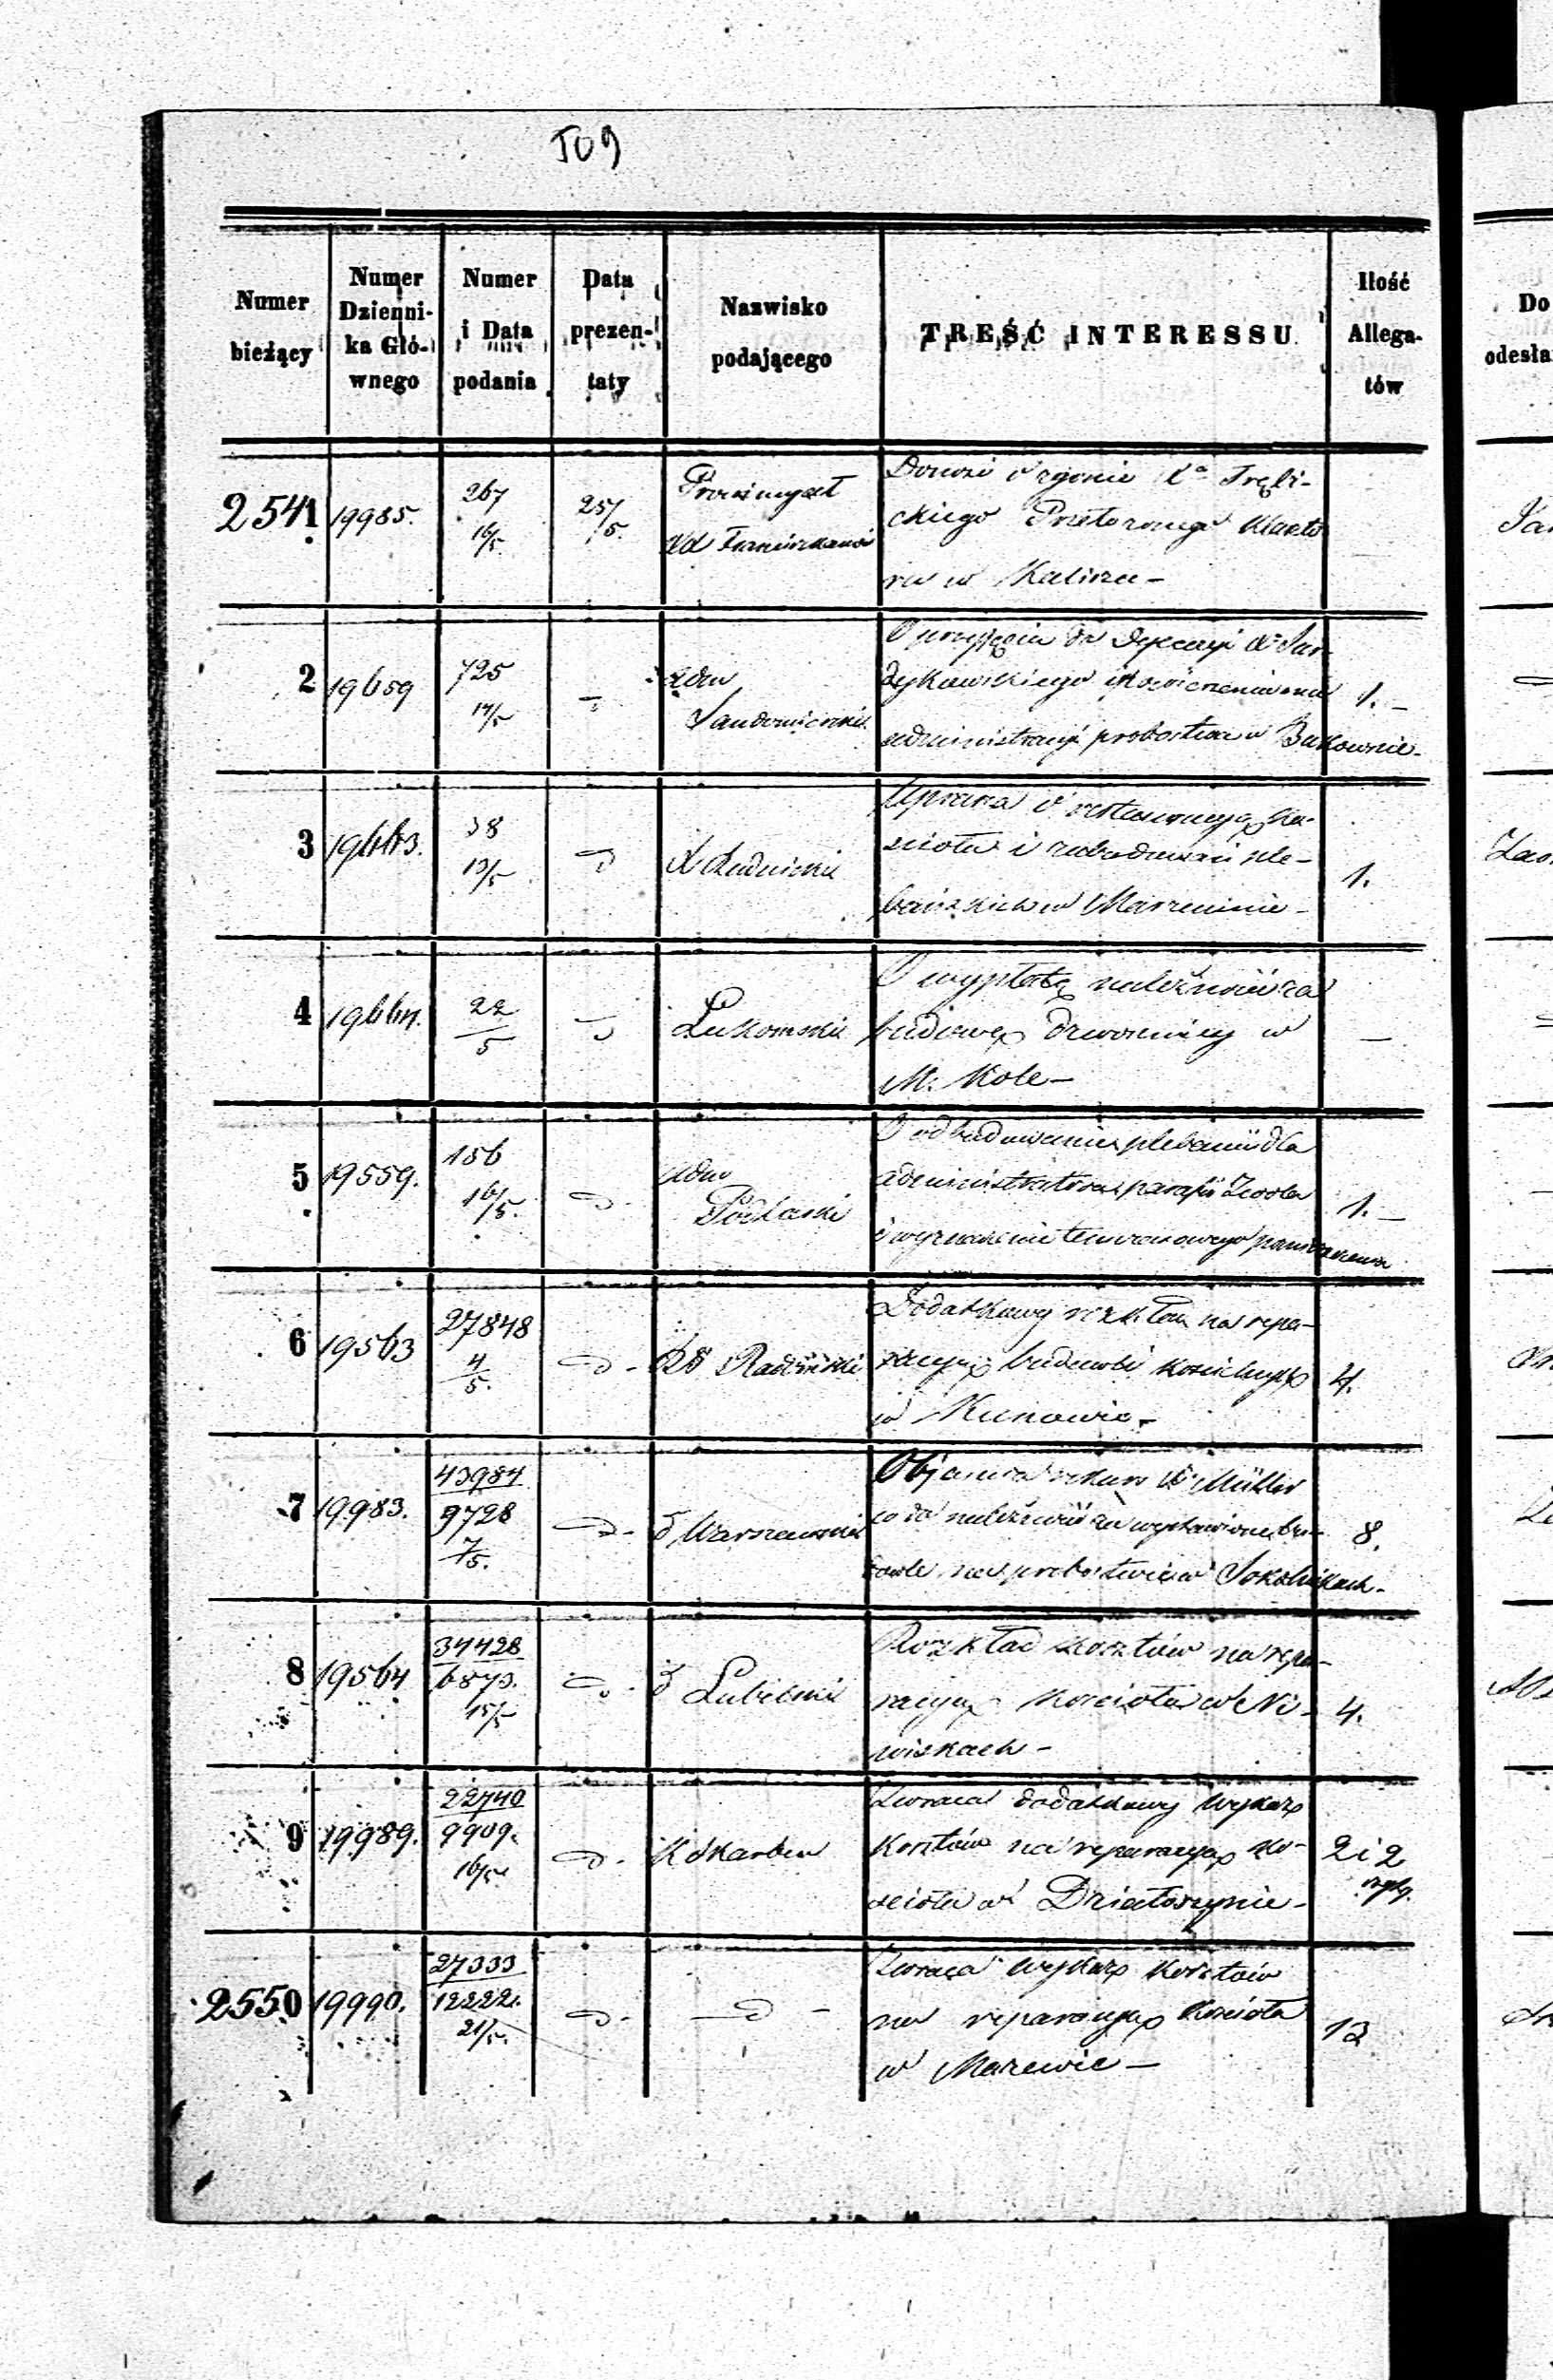 509
Numer bieżący
Numer Dzienni-ka Głó-wnego
Numer i Data podania
Data prezen-taty
Nazwisko podającego
TREŚĆ INTERESSU
Ilość Allega-tów
Do odesła
2541 19985. 267 16/5 25/5. Donosi o zgonie Xa
ckiego Klaszto
ru w Kaliszu -
2 19659 725 17/5 Adm Sandomierski O przyjęcie do Dyecezyi Xa
1. -
administracyi probostwa w Bukownie -
3 19663. 38 13/5 X Rudnicki Uprasza o restauracyą Ko-
ścioła i zabudowań ple-
bańskich w Marzeninie - 1.
4 19664. 22/5 Łukomski O wypłatę należności za
budowę dzwonnicy w
M. Kole -
5 19559. 156 16/5. Adm Podlaski O odbudowanie plebanii dla
administratora parafii Zwola 1. -
i wyznaczenie tymczasowego pomieszczenia
6 19563 27848 4/5. Radomski Dodatkowy rozkład na repa-
racyą budowli 4.
w Kunowie -
7 19983. 43984 9728 7/5. Warszawski Objaśnia rekurs Xa Müller
co do należności za wystawione bu- 8.
dowle na probostwie w Sokolnikach -
8 19564 34428 6873. 15/5 Lubelski Rozkład kosztów na repa-
racyą Kościoła w Ni- 4.
wiskach -
9 19989. 22740 9909. 16/5 K Skarbu Zwraca dodatkowy wykaz
kosztów na reparacyą Ko- 2 i 2
ścioła w Działoszynie -
2550 19990. 27333 12222. 21/5. Zwraca wykaz kosztów
na reparacyą Kościoła 12
w Mazewie -